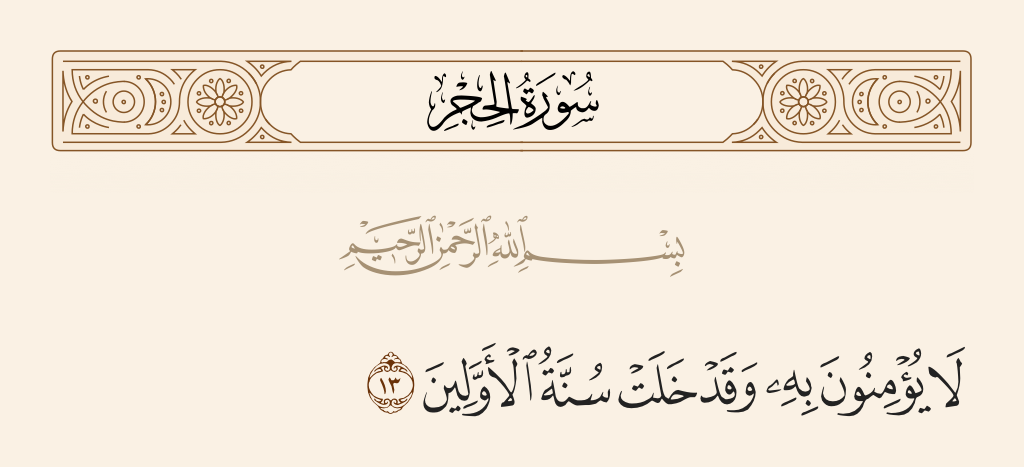 سُورَةُ الحِجْرِ
بِسْمِ ٱللَّهِ ٱلرَّحْمَٰنِ ٱلرَّحِيمِ
لَا يُؤْمِنُونَ بِهِۦ وَقَدْ خَلَتْ سُنَّةُ ٱلْأَوَّلِينَ ١٣